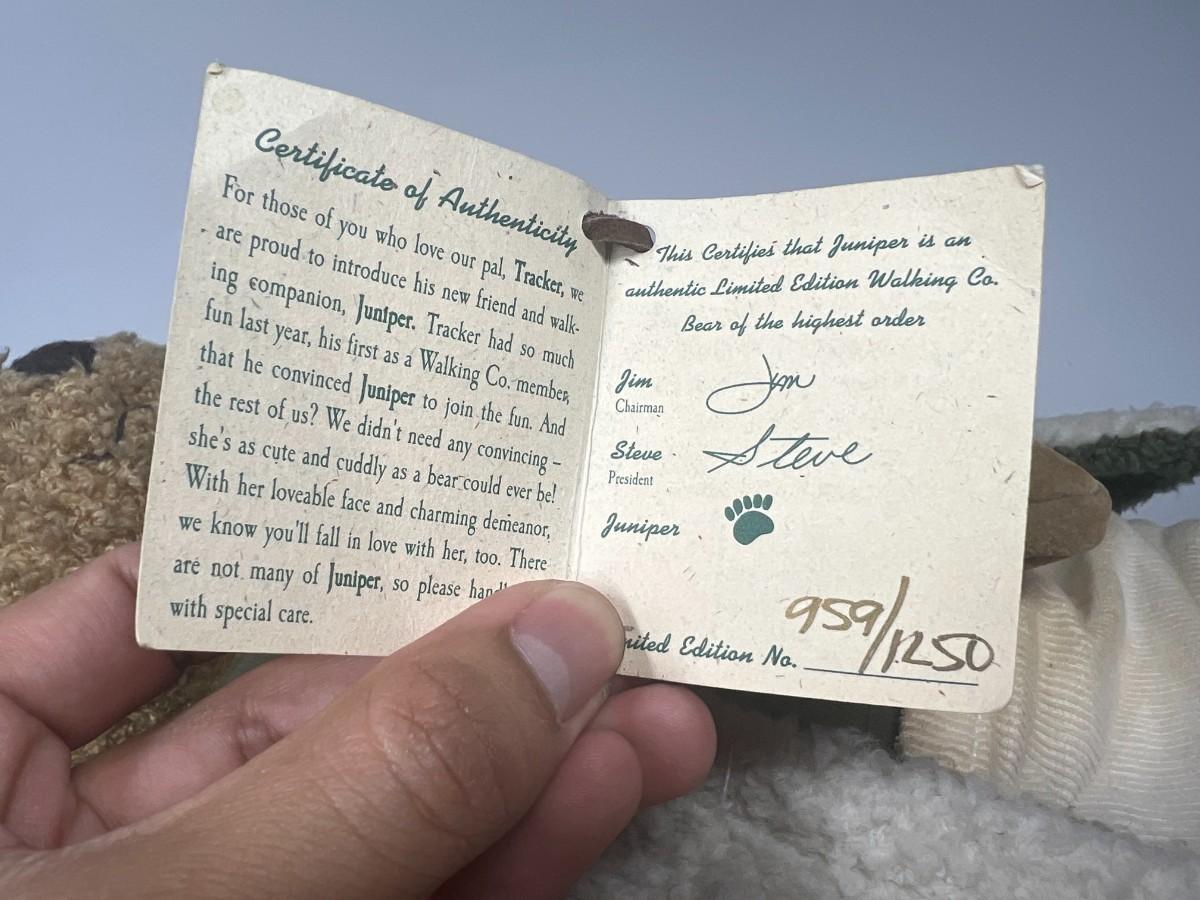 Certificate of Authenticity
For those of you who love our pal, Tracker, we
are proud to introduce his new friend and walk-
ing companion, Juniper. Tracker had so much
fun last year, his first as a Walking Co. member,
that he convinced Juniper to join the fun. And
the rest of us? We didn't need any convincing –
she's as cute and cuddly as a bear could ever be!
With her loveable face and charming demeanor,
we know you'll fall in love with her, too. There
are not many of Juniper, so please
with special care.
This Certifies that Juniper is an
authentic Limited Edition Walking Co.
Bear of the highest order
Jim Jim
Chairman
Steve Steve
President
Juniper
Edition No. 959/1250